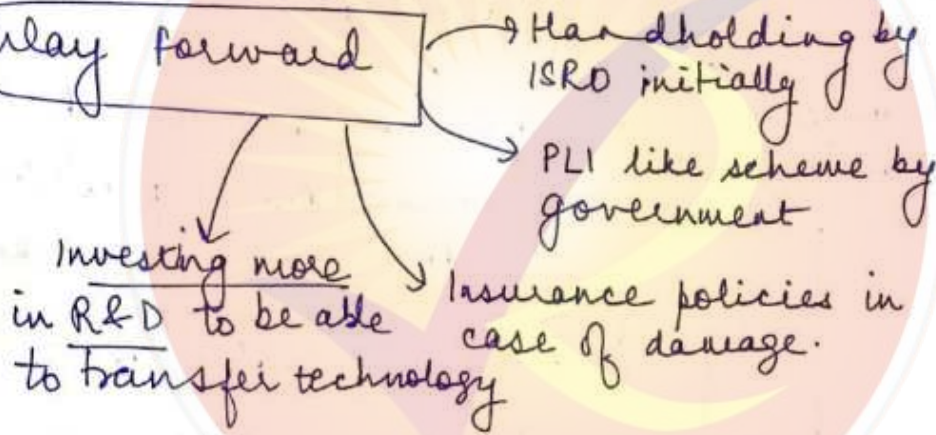 Way forward
Handholding by
ISRO initially
PLI like scheme by
government
Investing more
in R&D to be able
to transfer technology
Insurance policies in
case of damage.